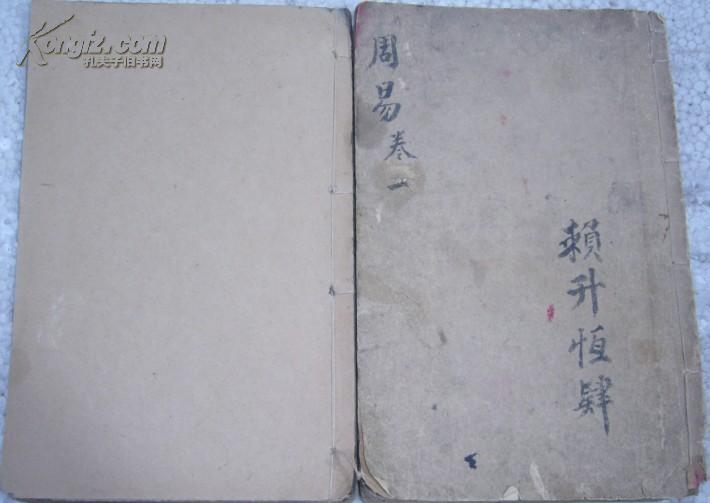 Kongfz.com
孔夫子旧书网
周易卷一
賴升恒肄